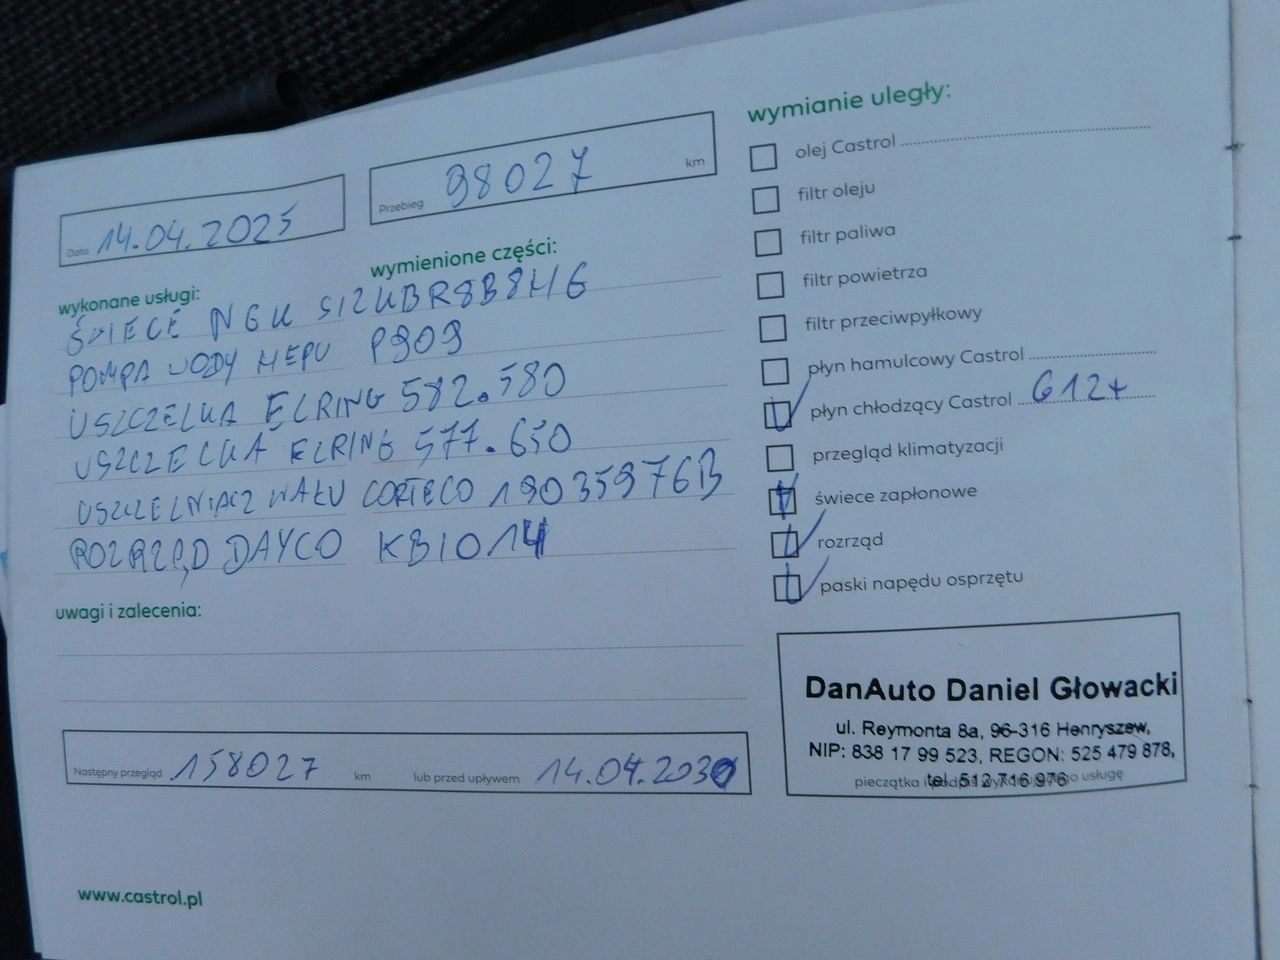 Data 14.04.2025
Przebieg 98027 km
wykonane usługi: wymienione części:
ŚWIECE NGK SIZKBR8B8H6
POMPA WODY HEPU P909
USZCZELKA ELRING 582.580
USZCZELKA ELRING 577.650
USZCZELNIACZ WAŁU CORTECO 19035976B
ROZRZĄD DAYCO KB1014
uwagi i zalecenia:
Następny przegląd 158027 km lub przed upływem 14.04.2030
www.castrol.pl
wymianie uległy:
olej Castrol
filtr oleju
filtr paliwa
filtr powietrza
filtr przeciwpyłkowy
płyn hamulcowy Castrol
płyn chłodzący Castrol G12+
przegląd klimatyzacji
świece zapłonowe
rozrząd
paski napędu osprzętu
DanAuto Daniel Głowacki
ul. Reymonta 8a, 96-316 Henryszew,
NIP: 838 17 99 523, REGON: 525 479 878,
tel. 512 716 976
pieczątka i podpis wykonującego usługę